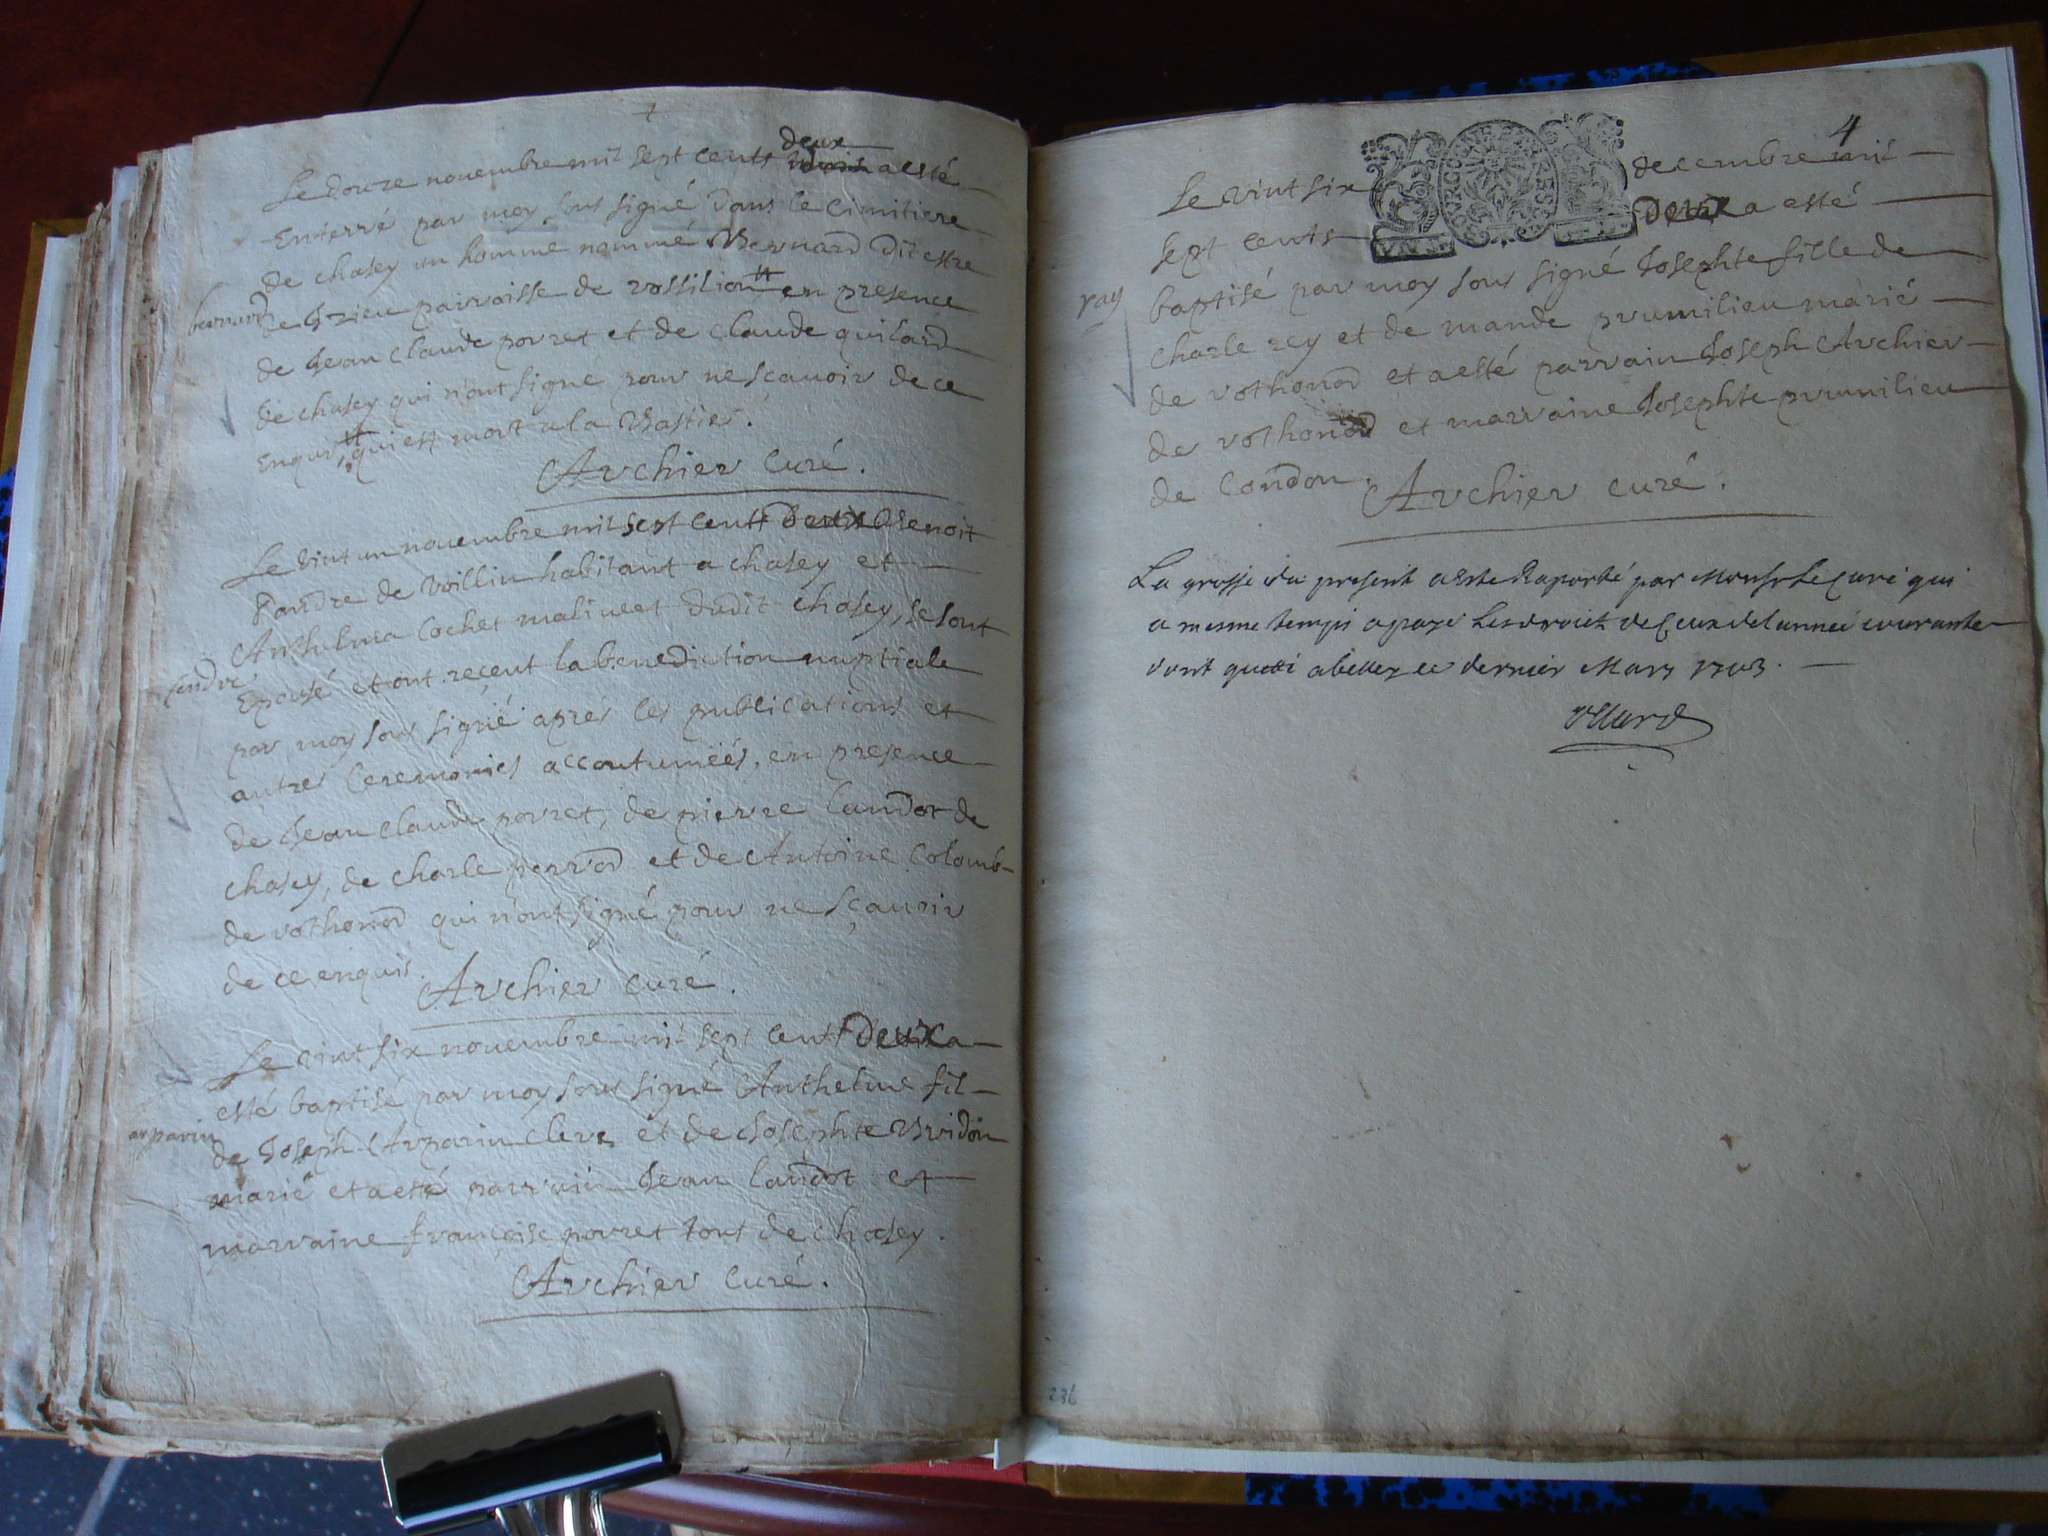 Le douze novembre mil sept cents deux a esté
Enterré par moy sous signé dans le cimitiere
de chasey un homme nommé Bernard dit estre
bernard
de parroisse de rossilion en presence
de Jean claude porret et de claude quilard
de chasey qui n'ont signe pour ne scavoir de ce
Enquis, qui est mort a la Bastie.
Archier curé.
Le vint un novembre mil sept cents deux Benoit
de Voillin habitant a chasey et
Anthelma Cochet dudit chasey, se sont
Epousé et ont recent la benediction nuptiale
par moy sous signé apres les publications et
autres Ceremonies accoutumées, en presence
de Jean claude porret, de pierre landot de
chasey, de charle perrod et de Antoine Colomb
de vothonod qui n'ont signé pour ne sçavoir
de ce enquis.
Archier curé.
Le vint six novembre mil sept cents deux a
esté baptisé par moy sous signé Anthelme fil
arparin
de Joseph Arparin Clerc et de Josephte Bridon
marié et a esté parrain Jean landot et
marraine françoise porret tous de chasey.
Archier curé.
4
Le vint six decembre mil
sept cents deux a esté
baptisé par moy sous signé Josephte fille de
ray
charle rey et de mande prumilieu marié
de vothonod et a esté parrain Joseph Archier
de vothonod et marraine Josephte prumilieu
de Condon.
Archier curé.
La grosse du present a esté Raporté par Monsr Le Curé qui
a mesme temps a payé Les droicts de Ceux de l année courante
dont quitté a belley ce dernier Mars 1703.
236